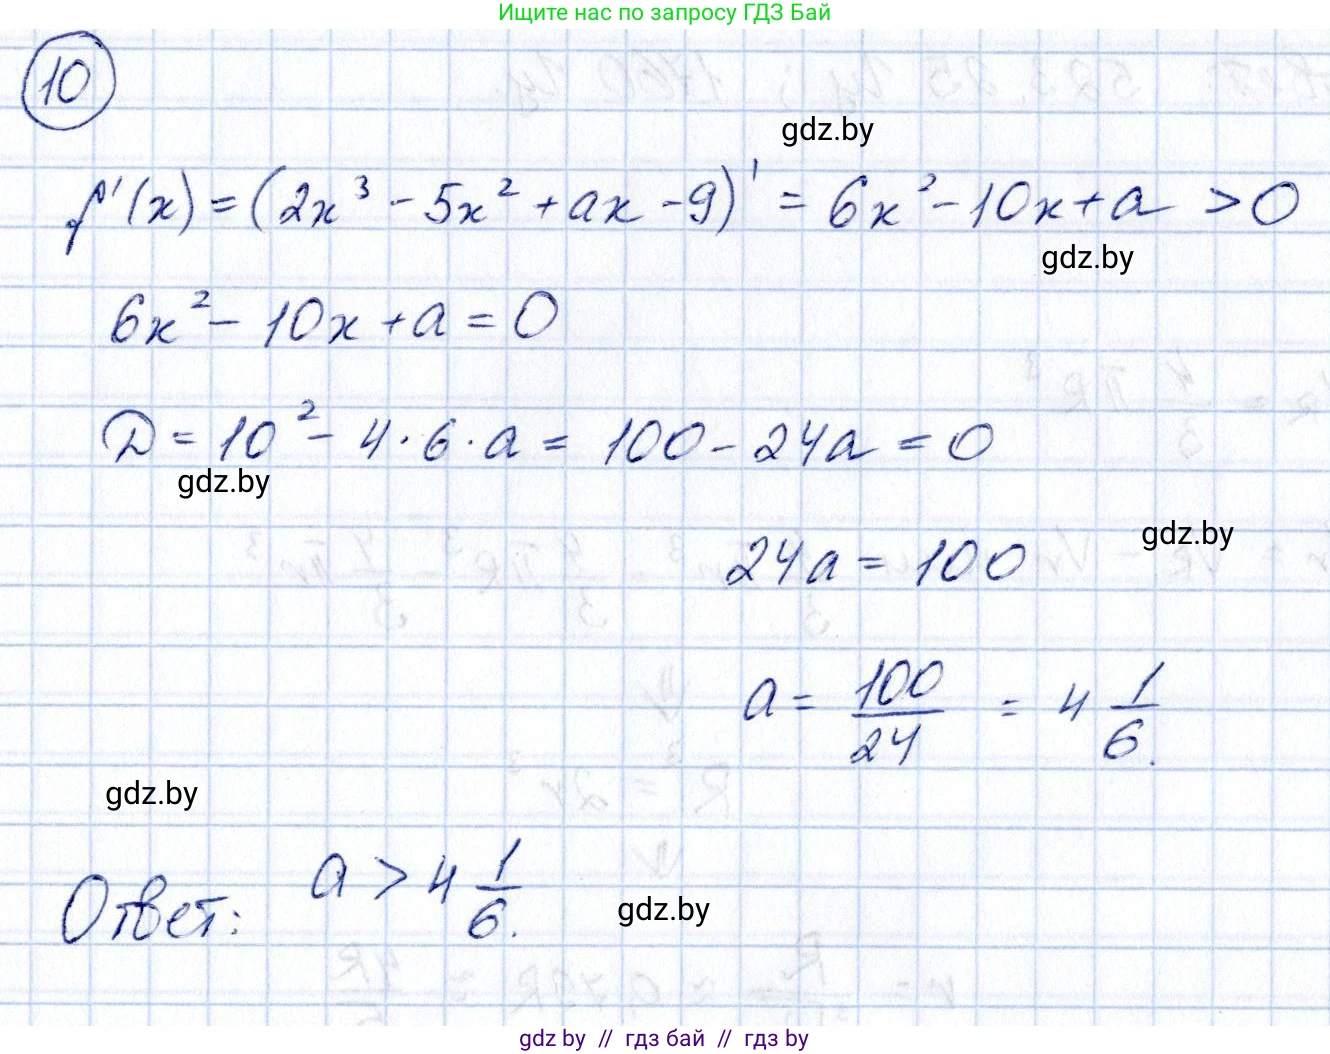 Ищите нас по запросу ГДЗ Бай
10
gdz.by
f'(x) = (2x³ - 5x² + ax - 9)' = 6x² - 10x + a > 0
gdz.by
6x² - 10x + a = 0
D = 10² - 4 · 6 · a = 100 - 24a = 0
gdz.by
gdz.by
24a = 100
a = 100/24 = 4 1/6.
gdz.by
Ответ: a > 4 1/6.
gdz.by
gdz by // гдз бай // гдз by